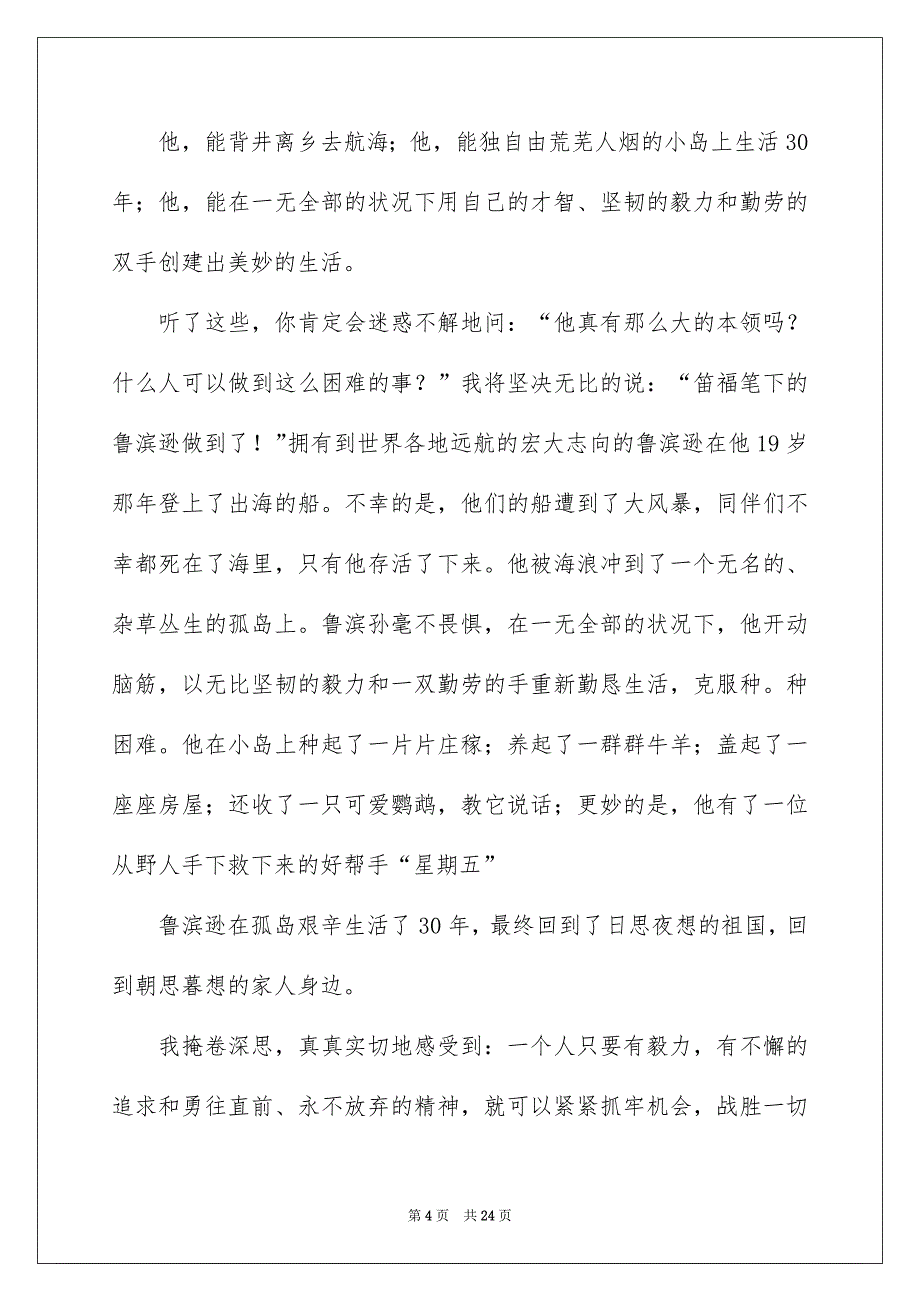 他，能背井离乡去航海；他，能独自由荒芜人烟的小岛上生活 30
年；他，能在一无全部的状况下用自己的才智、坚韧的毅力和勤劳的
双手创建出美妙的生活。
听了这些，你肯定会迷惑不解地问：“他真有那么大的本领吗？
什么人可以做到这么困难的事？”我将坚决无比的说：“笛福笔下的
鲁滨逊做到了！”拥有到世界各地远航的宏大志向的鲁滨逊在他 19 岁
那年登上了出海的船。不幸的是，他们的船遭到了大风暴，同伴们不
幸都死在了海里，只有他存活了下来。他被海浪冲到了一个无名的、
杂草丛生的孤岛上。鲁滨孙毫不畏惧，在一无全部的状况下，他开动
脑筋，以无比坚韧的毅力和一双勤劳的手重新勤恳生活，克服种。种
困难。他在小岛上种起了一片片庄稼；养起了一群群牛羊；盖起了一
座座房屋；还收了一只可爱鹦鹉，教它说话；更妙的是，他有了一位
从野人手下救下来的好帮手“星期五”
鲁滨逊在孤岛艰辛生活了 30 年，最终回到了日思夜想的祖国，回
到朝思暮想的家人身边。
我掩卷深思，真真实切地感受到：一个人只要有毅力，有不懈的
追求和勇往直前、永不放弃的精神，就可以紧紧抓牢机会，战胜一切
第 4 页 共 24 页